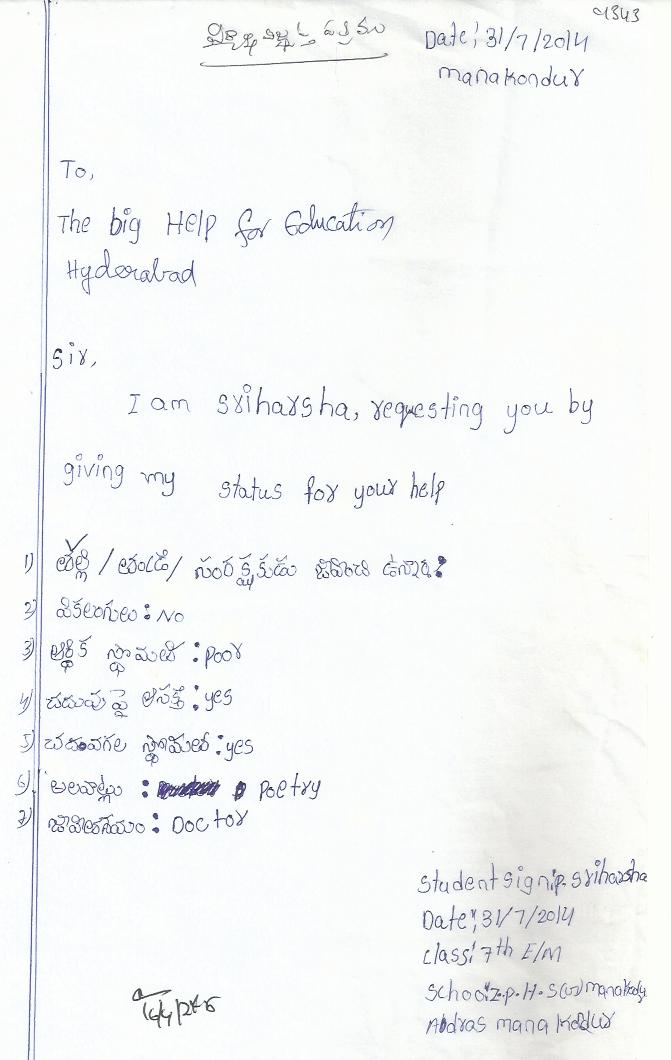 9343
Date: 31/7/2014
manakondur
To,
The big Help for Education
Hyderabad
Sir,
I am sriharsha, requesting you by
giving my status for your help
1) తల్లి / తండ్రి / సంరక్షకుడు జీవించి ఉన్నార:
2) వికలాంగులు : No
3) ఆర్థిక స్థొమతి : poor
4) చదువు పై ఆసక్తి : yes
5) చదువగల స్థొమతి : yes
6) అలవాట్లు : Poetry
7) జీవితాశయం : Doctor
Student sign: p. sriharsha
Date: 31/7/2014
class: 7th E/M
School: Z.p.H.S
Addras mana kodur